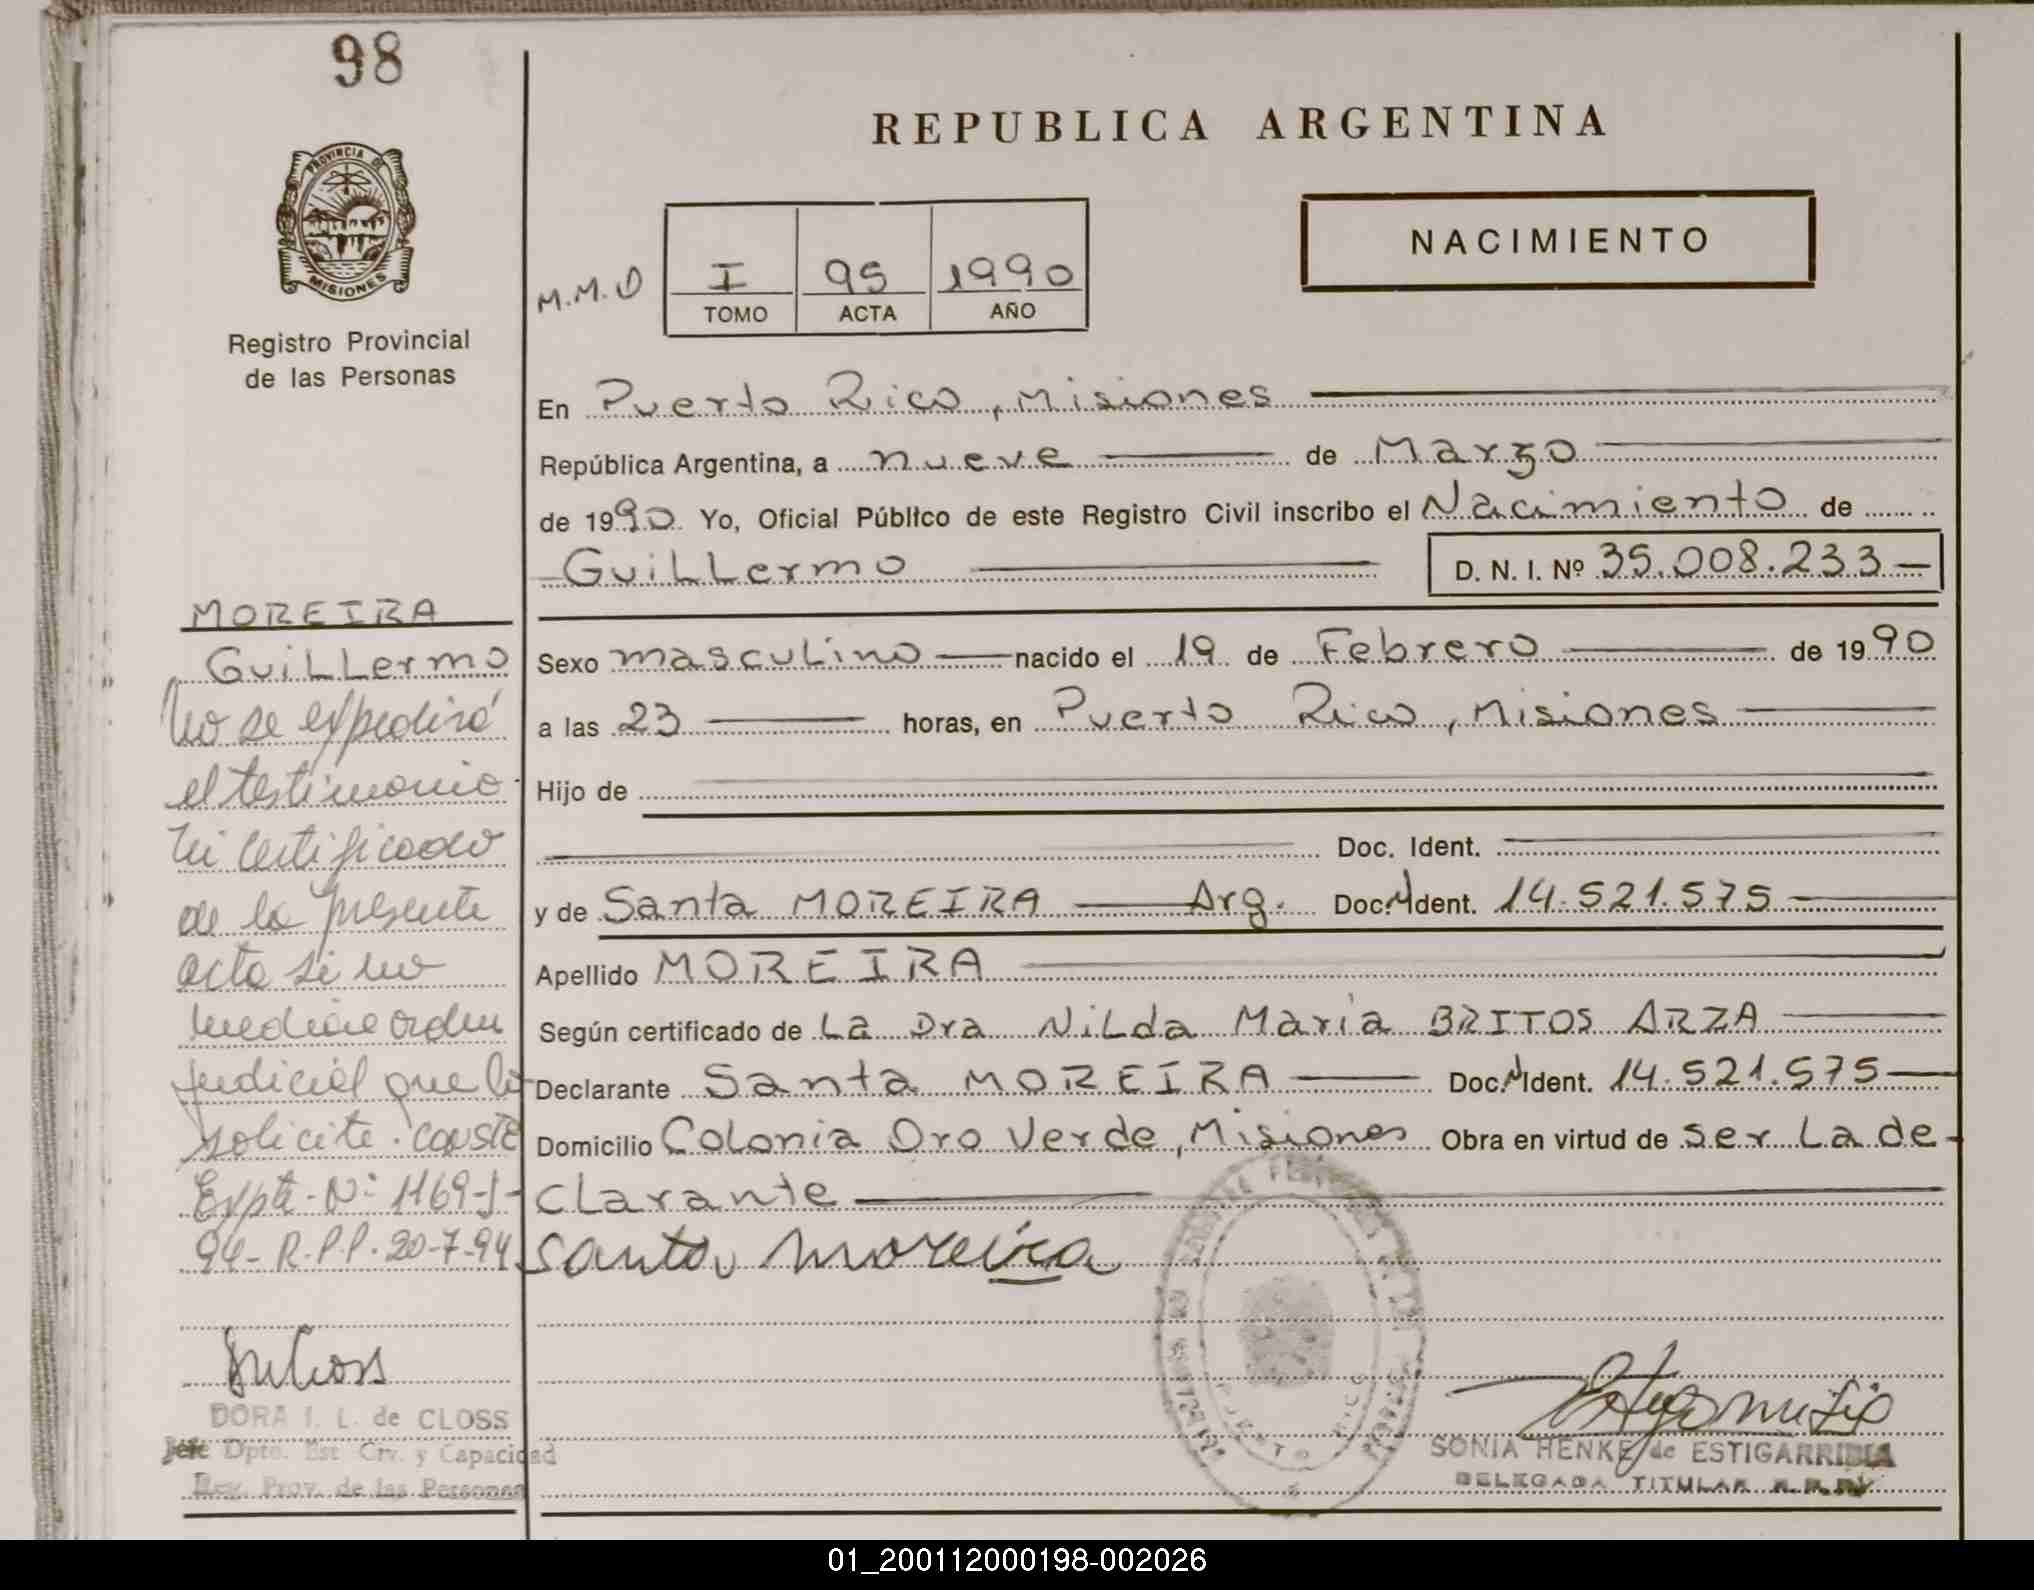 98
REPUBLICA ARGENTINA
PROVINCIA DE
MISIONES
Registro Provincial
de las Personas
NACIMIENTO
M.M.D
I 95 1990
TOMO ACTA AÑO
En Puerto Rico, Misiones
República Argentina, a nueve de Marzo
de 1990 Yo, Oficial Público de este Registro Civil inscribo el Nacimiento de
Guillermo D. N. I. Nº 35.008.233
Sexo masculino nacido el 19 de Febrero de 1990
a las 23 horas, en Puerto Rico, Misiones
Hijo de
Doc. Ident.
y de Santa MOREIRA Arg. Doc. Ident. 14.521.575
Apellido MOREIRA
Según certificado de La Dra Nilda María BRITOS ARZA
Declarante Santa MOREIRA Doc. Ident. 14.521.575
Domicilio Colonia Oro Verde, Misiones Obra en virtud de ser La de-
clarante
Santa Moreira
SONIA HENKE de ESTIGARRIBIA
DELEGADA TITULAR
MOREIRA
Guillermo
No se expedirá
el testimonio
ni certificado
de la presente
acta si no
mediare orden
judicial que lo
solicite. conste
Expte. Nº 1169-J-
94- R.P.P. 20-7-94
DORA I. L. de CLOSS
Jefe Dpto. Est. Civ. y Capacidad
Reg. Prov. de las Personas
01_200112000198-002026